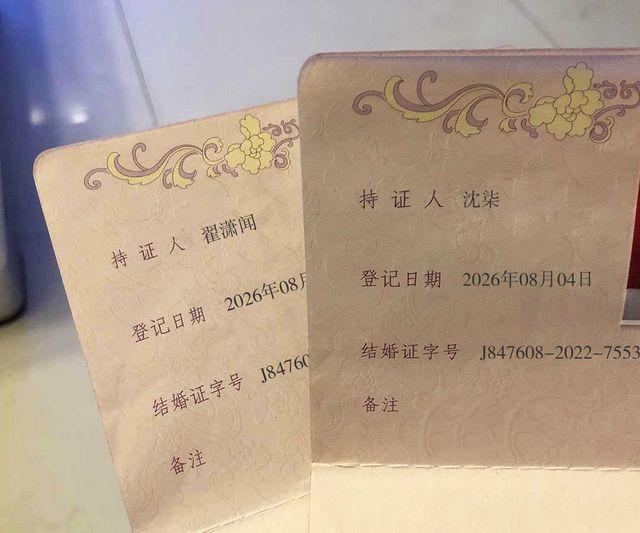 持证人 翟潇闻
登记日期 2026年08月
结婚证字号 J84760
备注
持证人 沈柒
登记日期 2026年08月04日
结婚证字号 J847608-2022-7553
备注